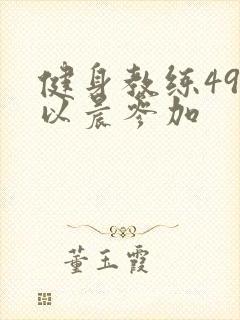 健身教练49
以晨岑加
董玉霞